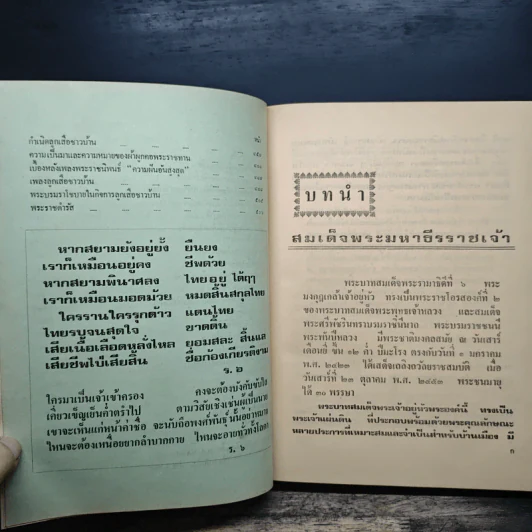 หน้า
กำเนิดลูกเสือชาวบ้าน
ความเป็นมาและความหมายของผ้าผูกคอพระราชทาน
เบื้องหลังเพลงพระราชนิพนธ์ "ความฝันอันสูงสุด"
เพลงลูกเสือชาวบ้าน
พระบรมราโชบายในกิจการลูกเสือชาวบ้าน
พระราชดำรัส
หากสยามยังอยู่ยั้ง ยืนยง
เราก็เหมือนอยู่คง ชีพด้วย
หากสยามพินาศลง ไทยอยู่ ได้ฤๅ
เราก็เหมือนมอดม้วย หมดสิ้นสกุลไทย
ใครรานใครรุกด้าว แดนไทย
ไทยรบจนสุดใจ ขาดดิ้น
เสียเนื้อเลือดหลั่งไหล ยอมสละ สิ้นแล
เสียชีพไป่เสียสิ้น ชื่อก้องเกียรติงาม
ร. ๖
ใครมาเป็นเจ้าเข้าครอง คงจะต้องบังคับขับไส
เคี่ยวเข็ญเย็นค่ำกรำไป ตามวิสัยเชิงเช่นผู้เป็นนาย
เขาจะเห็นแก่หน้าค่าชื่อ จะนับถือพงศ์พันธุ์นั้นอย่าหมาย
ไหนจะต้องเหนื่อยยากลำบากกาย ไหนจะอายทั่วทั้งโลกา
ร. ๖
บทนำ
สมเด็จพระมหาธีรราชเจ้า
พระบาทสมเด็จพระรามาธิบดีที่ ๖ พระ
มงกุฎเกล้าเจ้าอยู่หัว ทรงเป็นพระราชโอรสองค์ที่ ๒
ของพระบาทสมเด็จพระพุทธเจ้าหลวง และสมเด็จ
พระศรีพัชรินทราบรมราชินีนาถ พระบรมราชชนนี
พระพันปีหลวง มีพระชาตมงคลสมัย ณ วันเสาร์
เดือนยี่ ขึ้น ๒ ค่ำ ปีมะโรง ตรงกับวันที่ ๑ มกราคม
พ.ศ. ๒๔๒๓ ได้เสด็จเถลิงถวัลยราชสมบัติ เมื่อ
วันเสาร์ที่ ๒๓ ตุลาคม พ.ศ. ๒๔๕๓ พระชนมายุ
ได้ ๓๐ พรรษา
พระบาทสมเด็จพระเจ้าอยู่หัวพระองค์นี้ ทรงเป็น
พระผู้ผ่านพิภพ ที่ประกอบพร้อมด้วยพระคุณลักษณะ
หลายประการที่เหมาะสมและจำเป็นสำหรับบ้านเมือง มี
ก